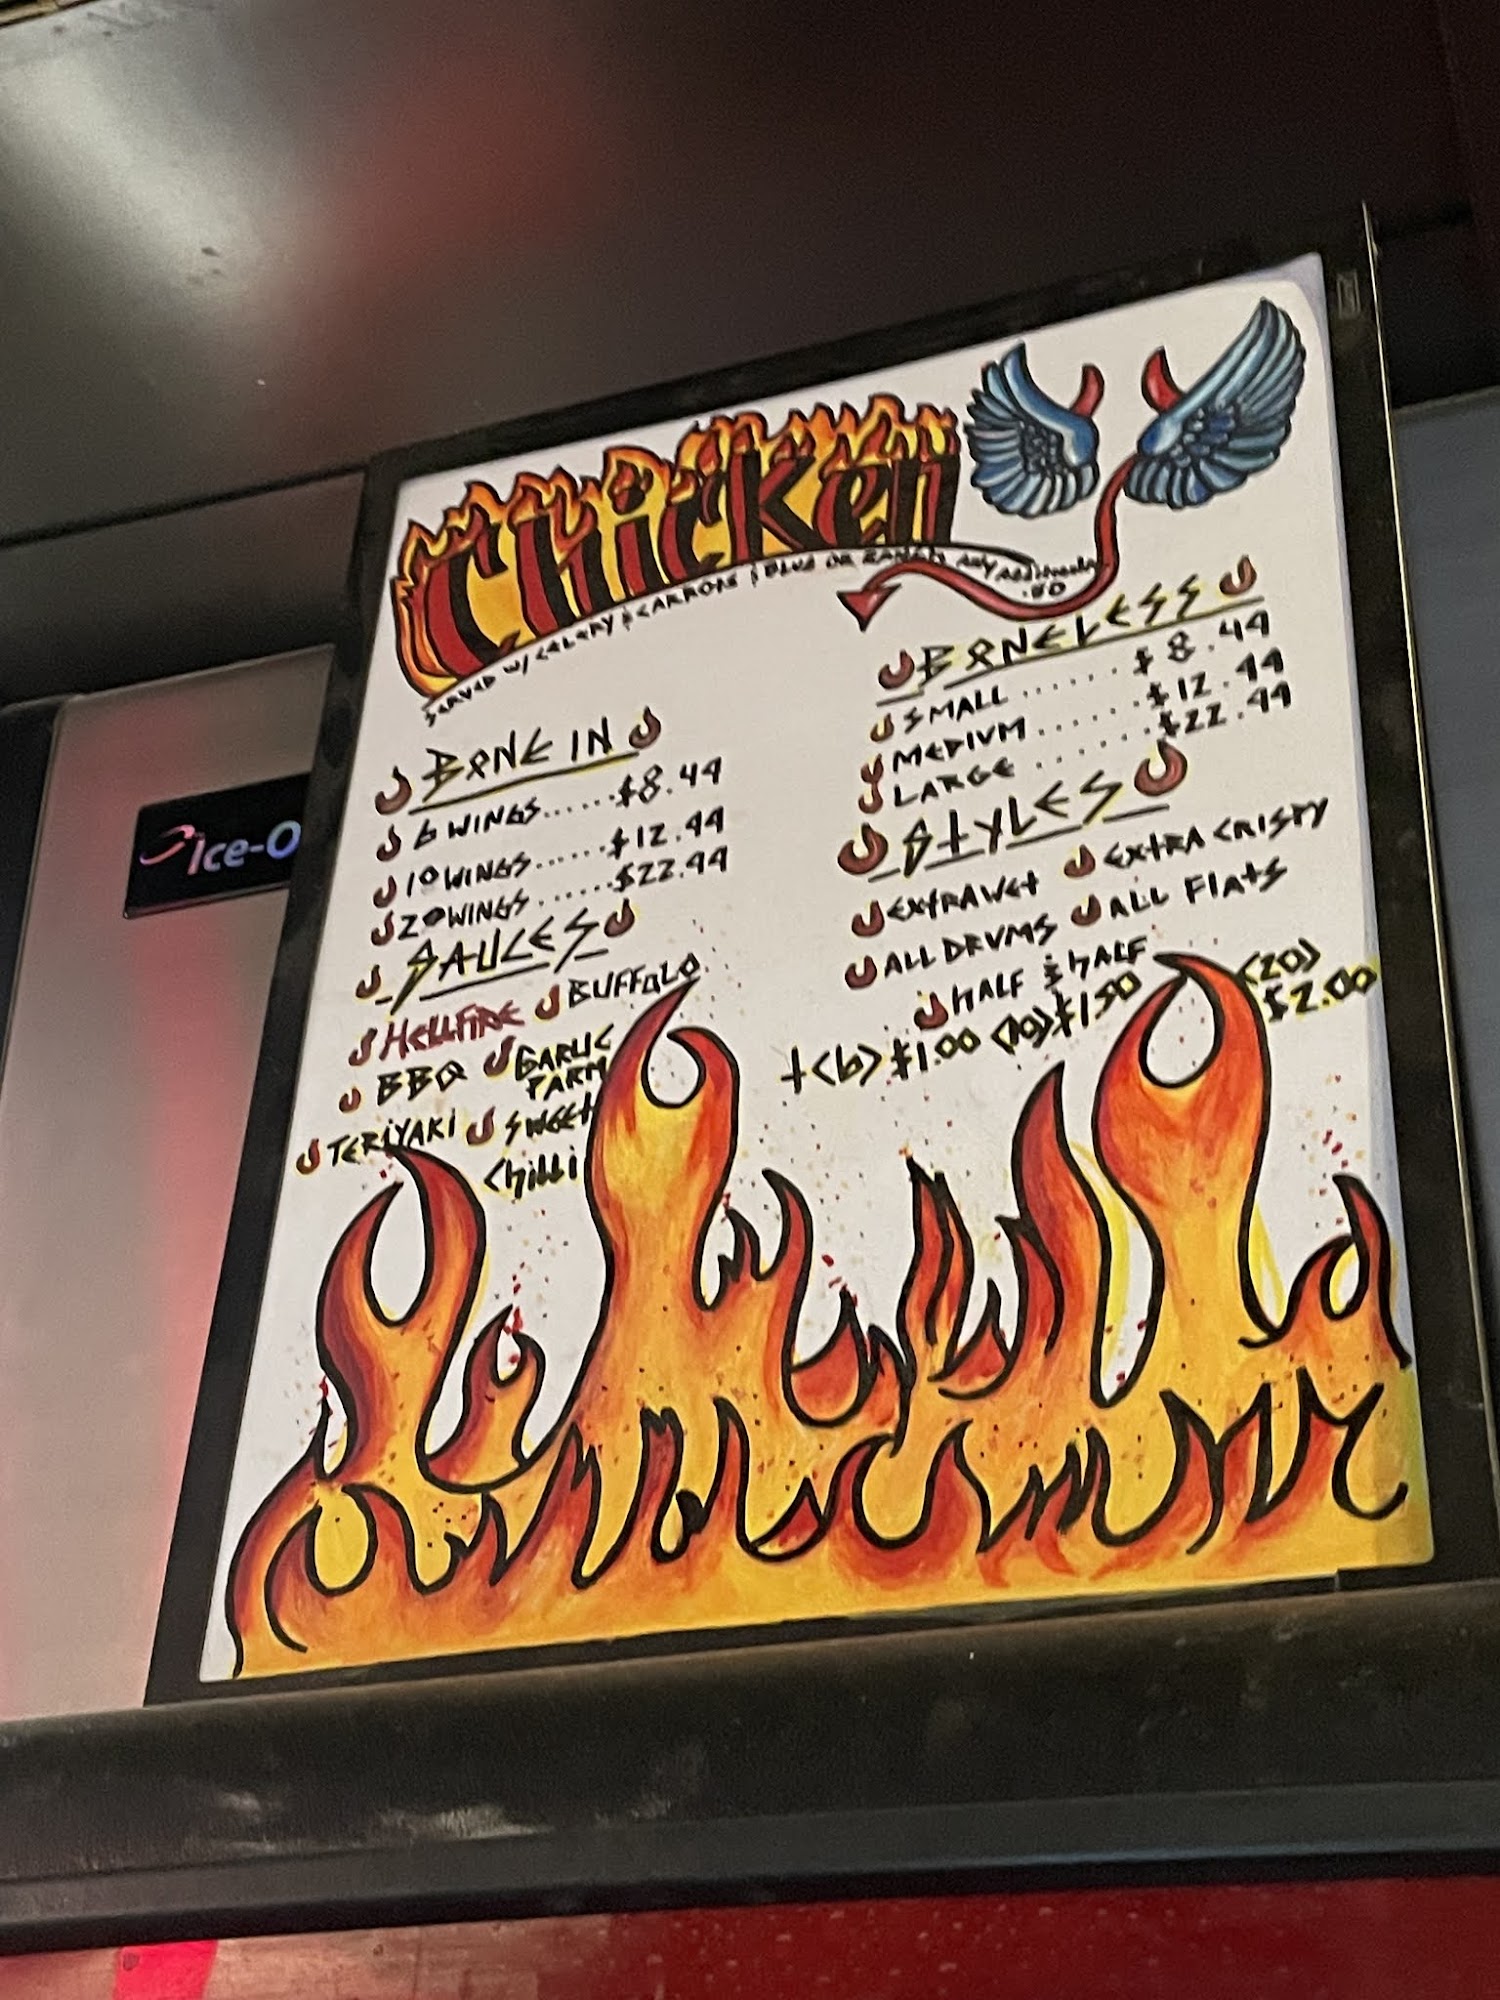 Chicken
SERVED W/ CELERY & CARROTS & BLUE OR RANCH ANY ADDITIONAL .50
BONE IN
6 WINGS......$8.49
10 WINGS......$12.99
20 WINGS......$22.99
SAUCES
HELLFIRE BUFFALO
BBQ GARLIC PARM
TERIYAKI SWEET CHILLI
BONELESS
SMALL......$8.49
MEDIUM......$12.99
LARGE......$22.99
STYLES
EXTRA WET EXTRA CRISPY
ALL DRUMS ALL FLATS
HALF & HALF
+(6) $1.00 (10) $1.50 (20) $2.00
Ice-O